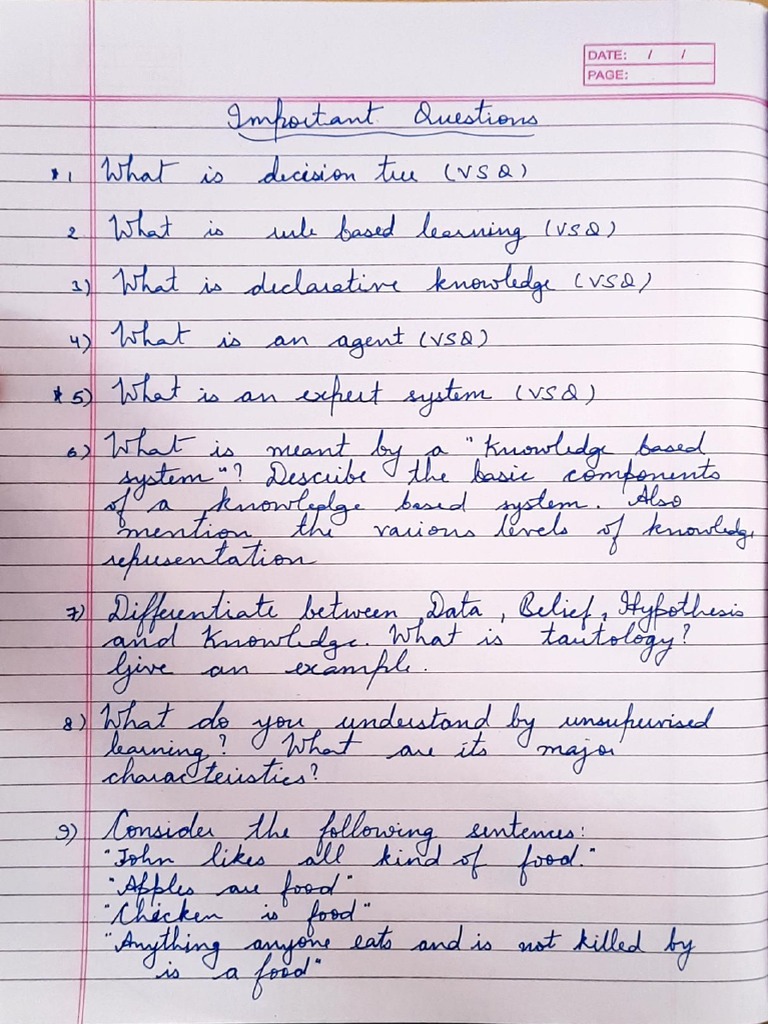 DATE: / /
PAGE:
Important Questions
* 1 What is decision tree (VSQ)
2 What is rule based learning (VSQ)
3) What is declarative knowledge (VSQ)
4) What is an agent (VSQ)
* 5) What is an expert system (VSQ)
6) What is meant by a "Knowledge based
system"? Describe the basic components
of a knowledge based system. Also
mention the various levels of knowledge
representation
7) Differentiate between Data, Belief, Hypothesis
and Knowledge. What is tautology?
Give an example.
8) What do you understand by unsupervised
learning? What are its major
characteristics?
9) Consider the following sentences:
"John likes all kind of food."
"Apples are food"
"Chicken is food"
"Anything anyone eats and is not killed by
is a food"